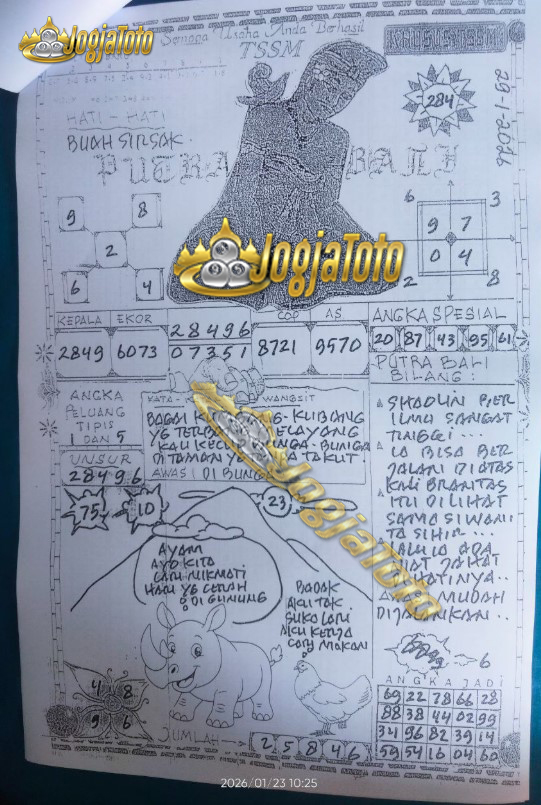 JogjaToto
Semoga Usaha Anda Berhasil
TSSM
KHUSUS TSSM
284
25-1-2026
HATI - HATI
BUAH SIRSAK
PUTRA BALI
9 8
2
6 4
6 3
9 7
0 4
2 8
JogjaToto
KEPALA EKOR
2849 6073
28496
07351
COP AS
8721 9570
ANGKA SPESIAL
20 87 43 95 61
ANGKA
PELUANG
TIPIS
1 DAN 5
UNSUR
28496
75 10
KATA - WANGSIT
BAGAI KUMBANG - KUBANG
YG TERBANG MELAYANG
DITAMAN
AWAS! DI BUNGA
JogjaToto
PUTRA BALI
BILANG:
SHAOLIN BER
ILMU SANGAT
TINGGI ...
IA BISA BER
JALANI DIATAS
KALI BRANTAS
ITU DILIHAT
SAMA SI WANI
TA SIHIR ...
LALU IA ADA
NIAT JAHAT
DIHATINYA ..
AWAS MUDAH
DIJALANKAN ..
23
AYAM
AYO KITA
LARI NIKMATI
HARI YG CERAH
DI GUNUNG
BADAK
AKU TAK
SUKA LARI
AKU KERJA
CARI MAKAN
6
ANGKA JADI
69 22 78 66 28
88 38 44 02 99
34 96 82 39 14
59 54 16 04 60
4 8
9 6
JUMLAH
2 5 8 4 6
2026/01/23 10:25